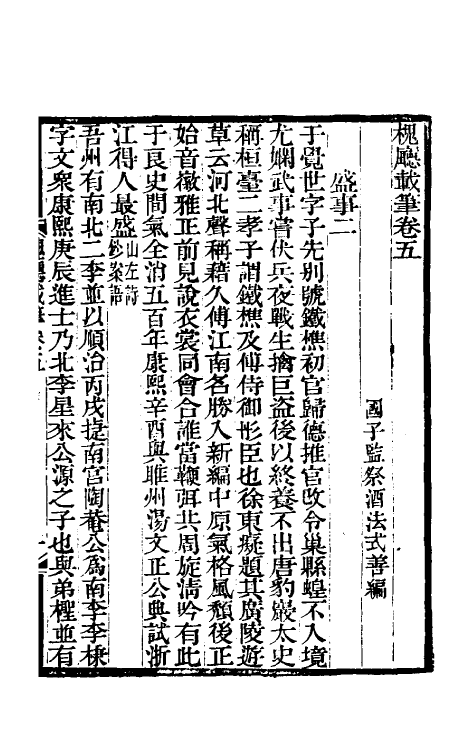 槐廳載筆卷五
國子監祭酒法式善編
盛事二
于覺世字子先別號鐵樵初官歸德推官改令巢縣蝗不入境
尤嫻武事嘗伏兵夜戰生擒巨盜後以終養不出唐豹巖太史
稱桓臺二孝子謂鐵樵及傅侍御彤臣也徐東癡題其廣陵遊
草云河北聲稱藉久傅江南名勝入新編中原氣格風頹後正
始音徽雅正前見說衣裳同會合誰當鞭弭共周旋淸吟有此
于艮史間氣全消五百年康熙辛酉與睢州湯文正公典試浙
江得人最盛山左詩鈔案語
吾州有南北二李並以順治丙戌捷南宮陶菴公爲南李李棣
字文衆康熙庚辰進士乃北李星來公源之子也與弟檉並有